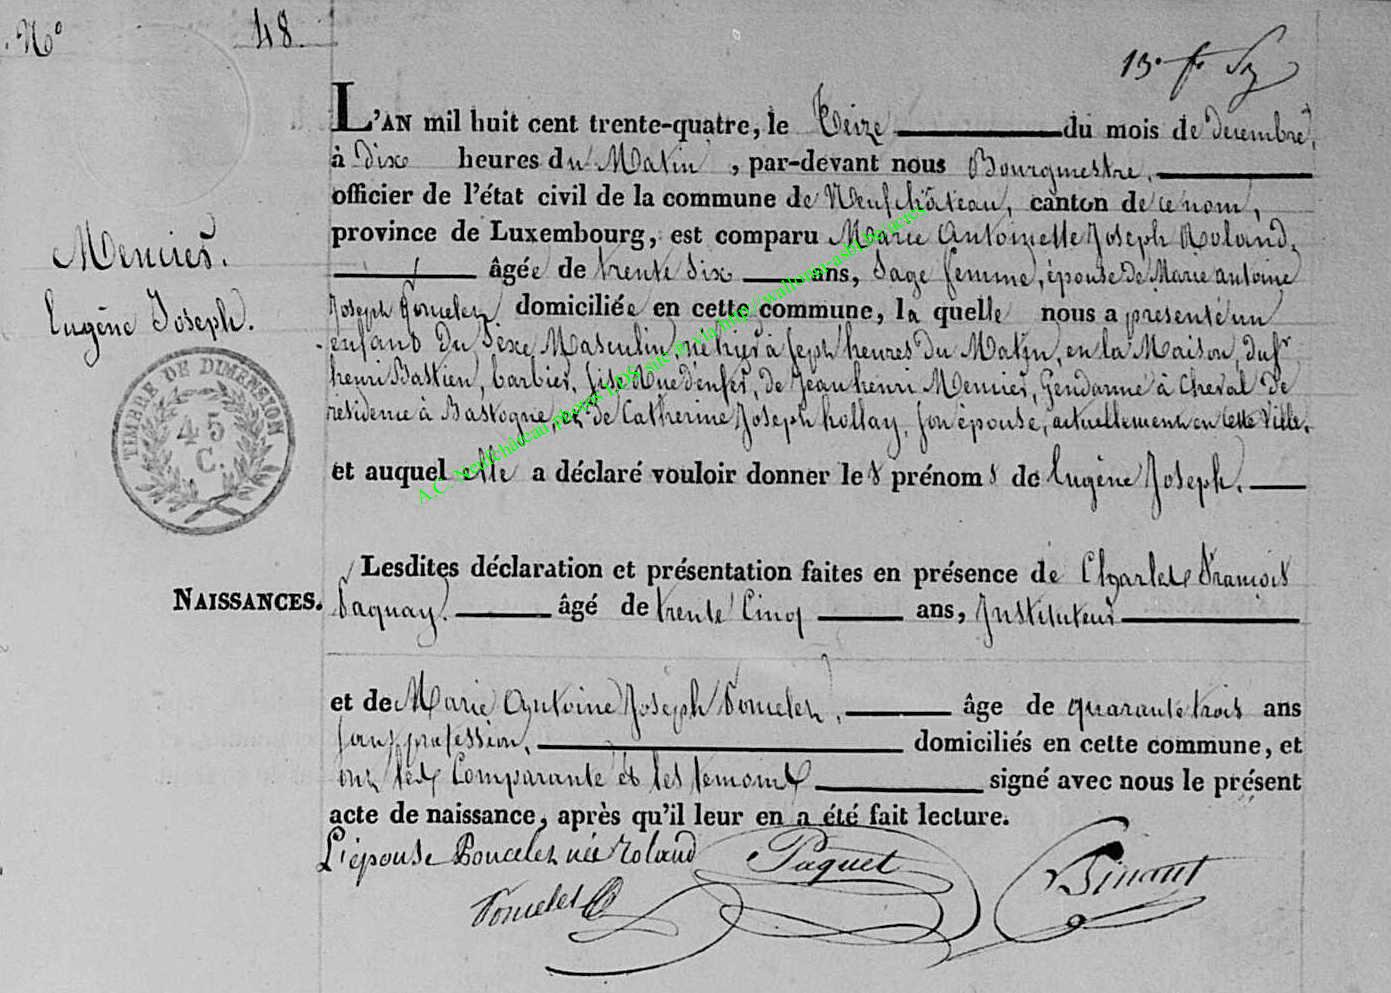 N° 48.
13e
L'AN mil huit cent trente-quatre, le treize du mois de decembre,
à dix heures du Matin, par-devant nous Bourgmestre,
officier de l'état civil de la commune de Neufchâteau, canton de ce nom,
province de Luxembourg, est comparu Marie Antoinette Joseph Roland,
âgée de trente six ans, Sage femme, épouse de Marie antoine
Joseph Poncelez domiciliée en cette commune, la quelle nous a présenté un
enfant du Sexe Masculin, né hier à Sept heures du Matin, en la Maison du Sr
henri Bastien, barbier, Sise Rue d'enfer, de Jean henri Menier, Gendarme à Cheval de
résidence à Bastogne, et de Catherine Joseph hollay, son épouse, actuellement en cette Ville.
et auquel elle a déclaré vouloir donner les prénoms de Eugène Joseph.
Menier.
Eugène Joseph.
TIMBRE DE DIMENSION
45
C.
NAISSANCES.
Lesdites déclaration et présentation faites en présence de Charles François
Paquay. âgé de trente Cinq ans, Instituteur
et de Marie Antoine Joseph Poncelez, âge de quarante trois ans
sans profession, domiciliés en cette commune, et
ont les Comparante et les temoins signé avec nous le présent
acte de naissance, après qu'il leur en a été fait lecture.
L'épouse Poncelez née roland Paquet Binant
Poncelet
A.C. Neufchâteau photos LDS site & via http://wallonia-asbl.be/actes